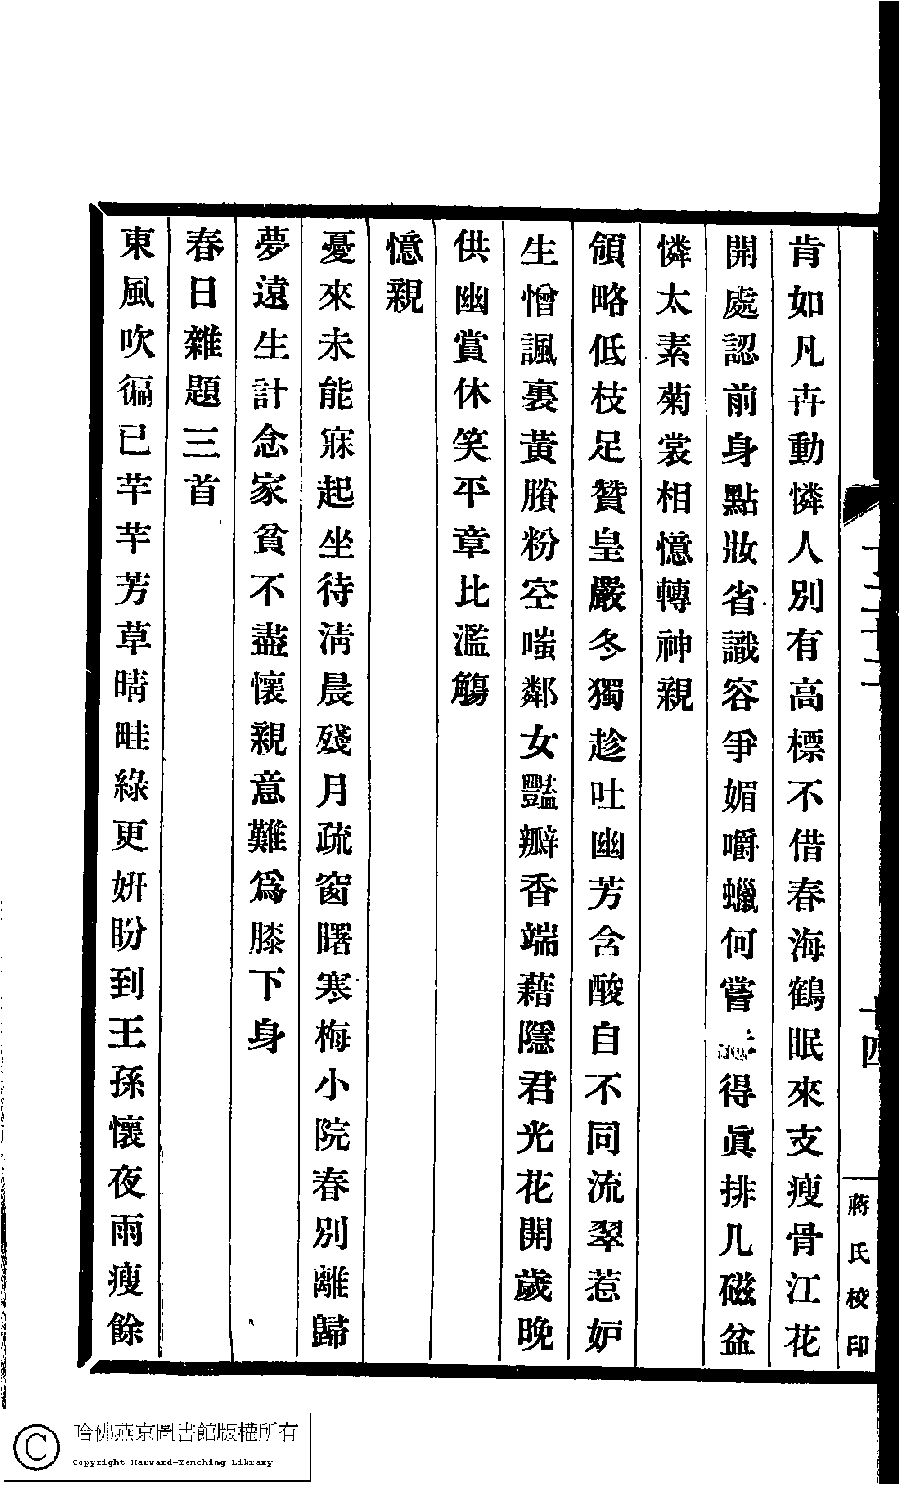 蔣氏校印
肯如凡卉動憐人別有高標不借春海鶴眠來支瘦骨江花
開處認前身點妝省識容爭媚嚼蠟何嘗得眞排几磁盆
憐太素菊裳相憶轉神親
領略低枝足贊皇嚴冬獨趁吐幽芳含酸自不同流翠惹妒
生憎諷裏黃賸粉空嗤鄰女豔瓣香端藉隱君光花開歲晚
供幽賞休笑平章比濫觴
憶親
憂來未能寐起坐待淸晨殘月疏窗曙寒梅小院春別離歸
夢遠生計念家貧不盡懷親意難爲膝下身
春日雜題三首
東風吹徧已芊芊芳草晴畦綠更姸盼到王孫懷夜雨瘦餘
哈佛燕京圖書館版權所有
Copyright Harvard-Yenching Library